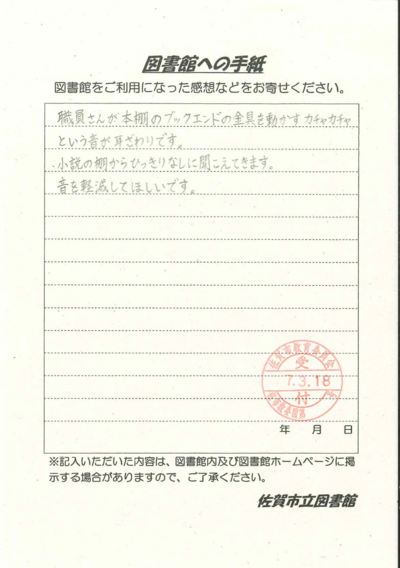 図書館への手紙
図書館をご利用になった感想などをお寄せください。
職員さんが本棚のブックエンドの金具を動かすカチャカチャ
という音が耳ざわりです。
小説の棚からひっきりなしに聞こえてきます。
音を軽減してほしいです。
佐賀市教育委員会
受
7.3.18
付
年 月 日
※記入いただいた内容は、図書館内及び図書館ホームページに掲
示する場合がありますので、ご了承ください。
佐賀市立図書館